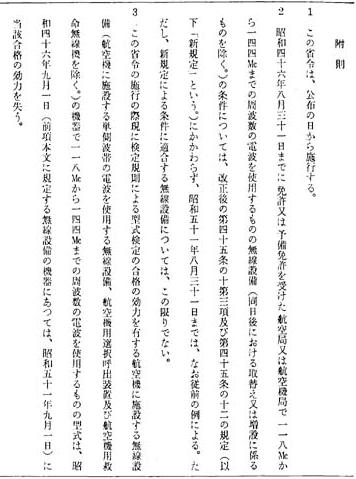 附則
1　この省令は、公布の日から施行する。
2　昭和四十六年八月三十一日までに免許又は予備免許を受けた航空局又は航空機局で一一八Mcか
ら一四四Mcまでの周波数の電波を使用するものの無線設備（同日後における取替え又は増設に係る
ものを除く。）の条件については、改正後の第四十五条の十第三項及び第四十五条の十二の規定（以
下「新規定」という。）にかかわらず、昭和五十一年八月三十一日までは、なお従前の例による。た
だし、新規定による条件に適合する無線設備については、この限りでない。
3　この省令の施行の際現に検定規則による型式検定の合格の効力を有する航空機に施設する無線設
備（航空機に施設する単側波帯の電波を使用する無線設備、航空機用選択呼出装置及び航空機用救
命無線機を除く。）の機器で一一八Mcから一四四Mcまでの周波数の電波を使用するものの型式は、昭
和四十六年九月一日（前項本文に規定する無線設備の機器にあつては、昭和五十一年九月一日）に
当該合格の効力を失う。